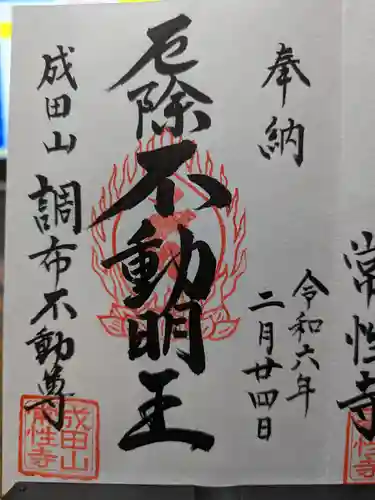 常性寺
奉納
令和六年
二月廿四日
厄除不動明王
成田山
調布不動尊
成田山
常性寺